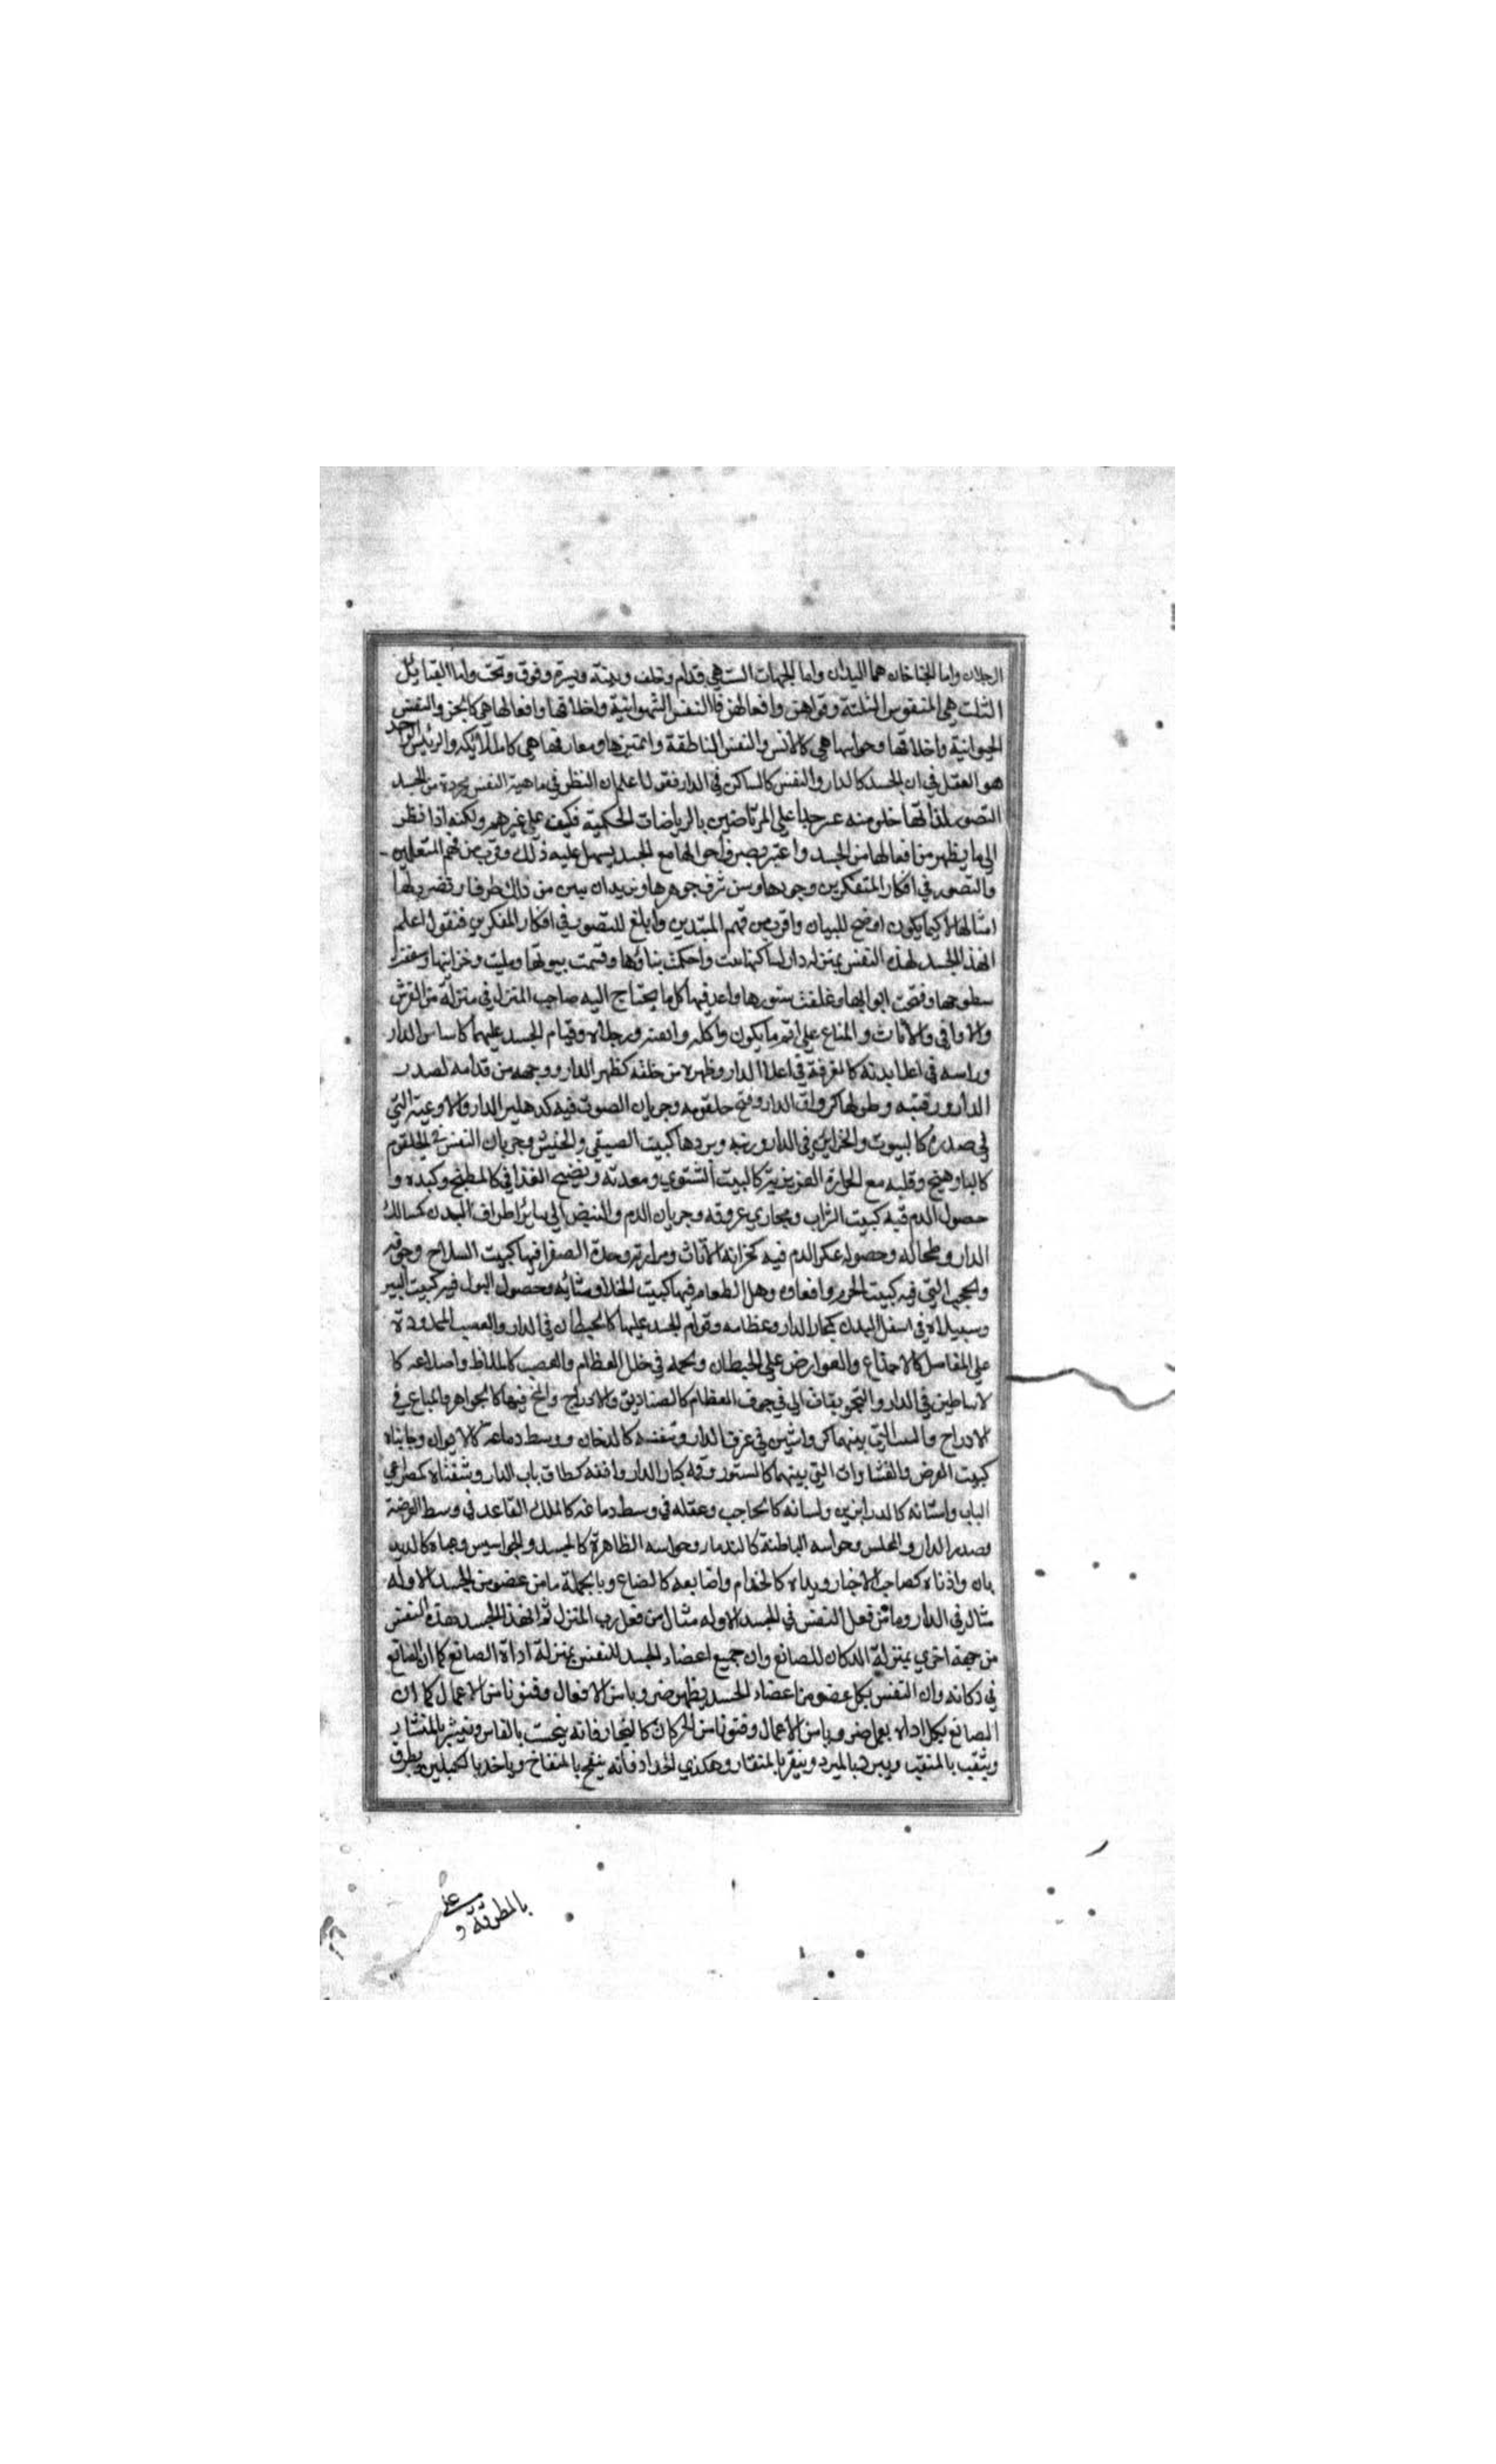 الرجلان واما الجناحان هما اليدان واما الجهات الست هي قدام وخلف ويمنة ويسرة وفوق وتحت واما القبايل
الثلث هي المنفوس الثلثة وقواهن وافعالهن فا النفس الشهوانية واخلاقها وافعالها هي كالجن والنفس
الحيوانية واخلاقها وحواسها هي كالانس والنفس الناطقة وتمييزها ومعارفها هي كالملائيكه والرئيس الواحد
هو العقل في ان الجسد كالدار والنفس كالساكن في الدار فنقول اعلم ان النظر في ماهية النفس مجردة من الجسد
التصور لذاتها خلو منه عسر جدا علي المرتاضين بالرياضات الحكمية فكيف علي غيرهم ولكنه اذا نظر
الي ما يظهر من افعالها من الجسد واعتبر وتصرف احوالها مع الجسد يسهل عليه ذلك وقرب من فهم المتعلمين
والتصور في افكار المتفكرين وجودها وبين شرف جوهرها ونريد ان نبين من ذلك طرفا ونضرب لها
امثالها لا كيما يكون اوضح للبيان واقرب من فهم المبتدين وابلغ للتصور في افكار المفكرين فنقول اعلم
ان هذا الجسد لهذه النفس بمنزلة دار لساكنها بنيت واحكمت بناؤها وقسمت بيوتها ومليت وخزاينها وسقفت
سطوحها وفتحت ابوابها وغلقت ستورها واعد فيها كل ما يحتاج اليه صاحب المنزل في منزلة من الفرش
والاواني والاثاث والمتاع علي اتم ما يكون واكله واتمه ورجلاه وقيام الجسد عليهما كاساس الدار
وراسه في اعلا بدنه كالغرفة في اعلا الدار وظهره من خلفه كظهر الدار ووجهه من قدامه لصدر
الدار ورقبته وطولها كرواق الدار وفتح حلقومه وجريان الصوت فيه كدهليز الدار والاوعية التي
في صدره كالبيوت والخزاين في الدار وريته وبردها كبيت الصيفي والخيش وجريان النفس في الحلقوم
كالبادهنج وقلبه مع الحرارة الغريزية كالبيت الشتوي ومعدته ونضيج الغذا في كالمطبخ وكبده و
حصول الدم فيه كبيت الشراب ومجاري عروقه وجريان الدم والنبض الي سائر اطراف البدن كسالك
الدار وطحاله وحصوله عكر الدم فيه كخزانة الاثاث ومرارته وحدة الصفرا فيها كبيت السلاح وجوفه
والحجب التي فيه كبيت الحرم وامعاوه وهل الطعام فيها كبيت الخلا ومثانه وحصول البول فيه كبيت البير
وسبيلاه في اسفل البدن كمجار الدار وعظامه وقوام الجسد عليها كالحيطان في الدار والعصب الممدودة
علي المفاصل كالاجذاع والعوارض علي الحيطان ولحمه في خلل العظام والعصب كالملاط واضلاعه كا
لاساطين في الدار والتجويفات الي في جوف العظام كالصناديق والادراج والمخ فيها كالجواهر والمتاع في
الادراج والسالتي بينهما كرواشين في غرف الدار وتنفسه كالدخان ووسط دماغه كالايوان وجانباه
كبيت العرض والغشاوات التي بينهما كالستور وفه كباب الدار وانفه كطاق باب الدار وشفتاه كمصراعي
الباب واسنانه كالدرابزين ولسانه كالحاجب وعقله في وسط دماغه كالملك القاعد في وسط العرضة
وصدر الدار والمجلس وحواسه الباطنة كالندماء وحواسه الظاهرة كالجسد والجواسيس وعيناه كالديد
بان واذناه كصاحب الاخبار ويداه كالخدام واضابعه كالضناع وبالجملة ما من عضو من الجسد الا وله
مثال في الدار وما من فعل النفس في الجسد الا وله مثال من فعل رب المنزل ثم ان هذا الجسد لهذه النفس
من جهة اخري بمنزلة الدكان للصانع وان جميع اعضاء الجسد للنفس بمنزلة اداة الصانع كما ان الصانع
في دكانه وان النفس بكل عضو من اعضاء الجسد يظهر ضروبا من الافعال وفنونا من الاعمال كما ان
الصانع بكل اداة يعمل ضروبا من الاعمال وفنونا من الحركات كالنجار فانه ينحت بالفاس وينشر بالمنشار
ويثقب بالمثقب ويبرد بالمبرد وينقر بالمنقار وهكذي الحداد فانه ينفخ بالمنفاخ وياخذ بالكلبتين ويطرق
بالمطرقة و